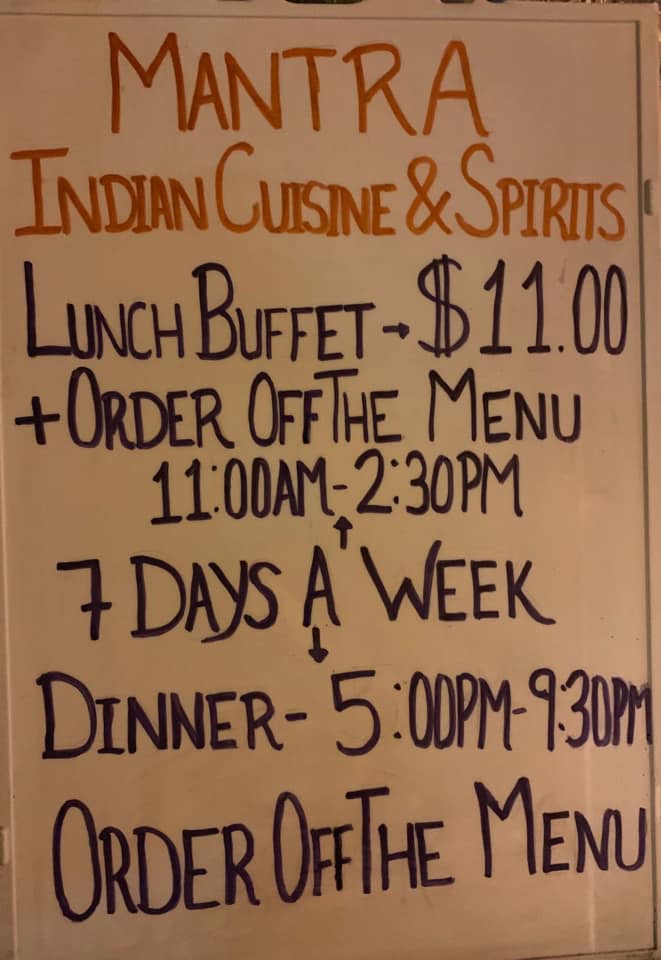 MANTRA
INDIAN CUISINE & SPIRITS
LUNCH BUFFET → $11.00
+ ORDER OFF THE MENU
11:00AM - 2:30PM
↑
7 DAYS A WEEK
↓
DINNER - 5:00PM - 9:30PM
ORDER OFF THE MENU